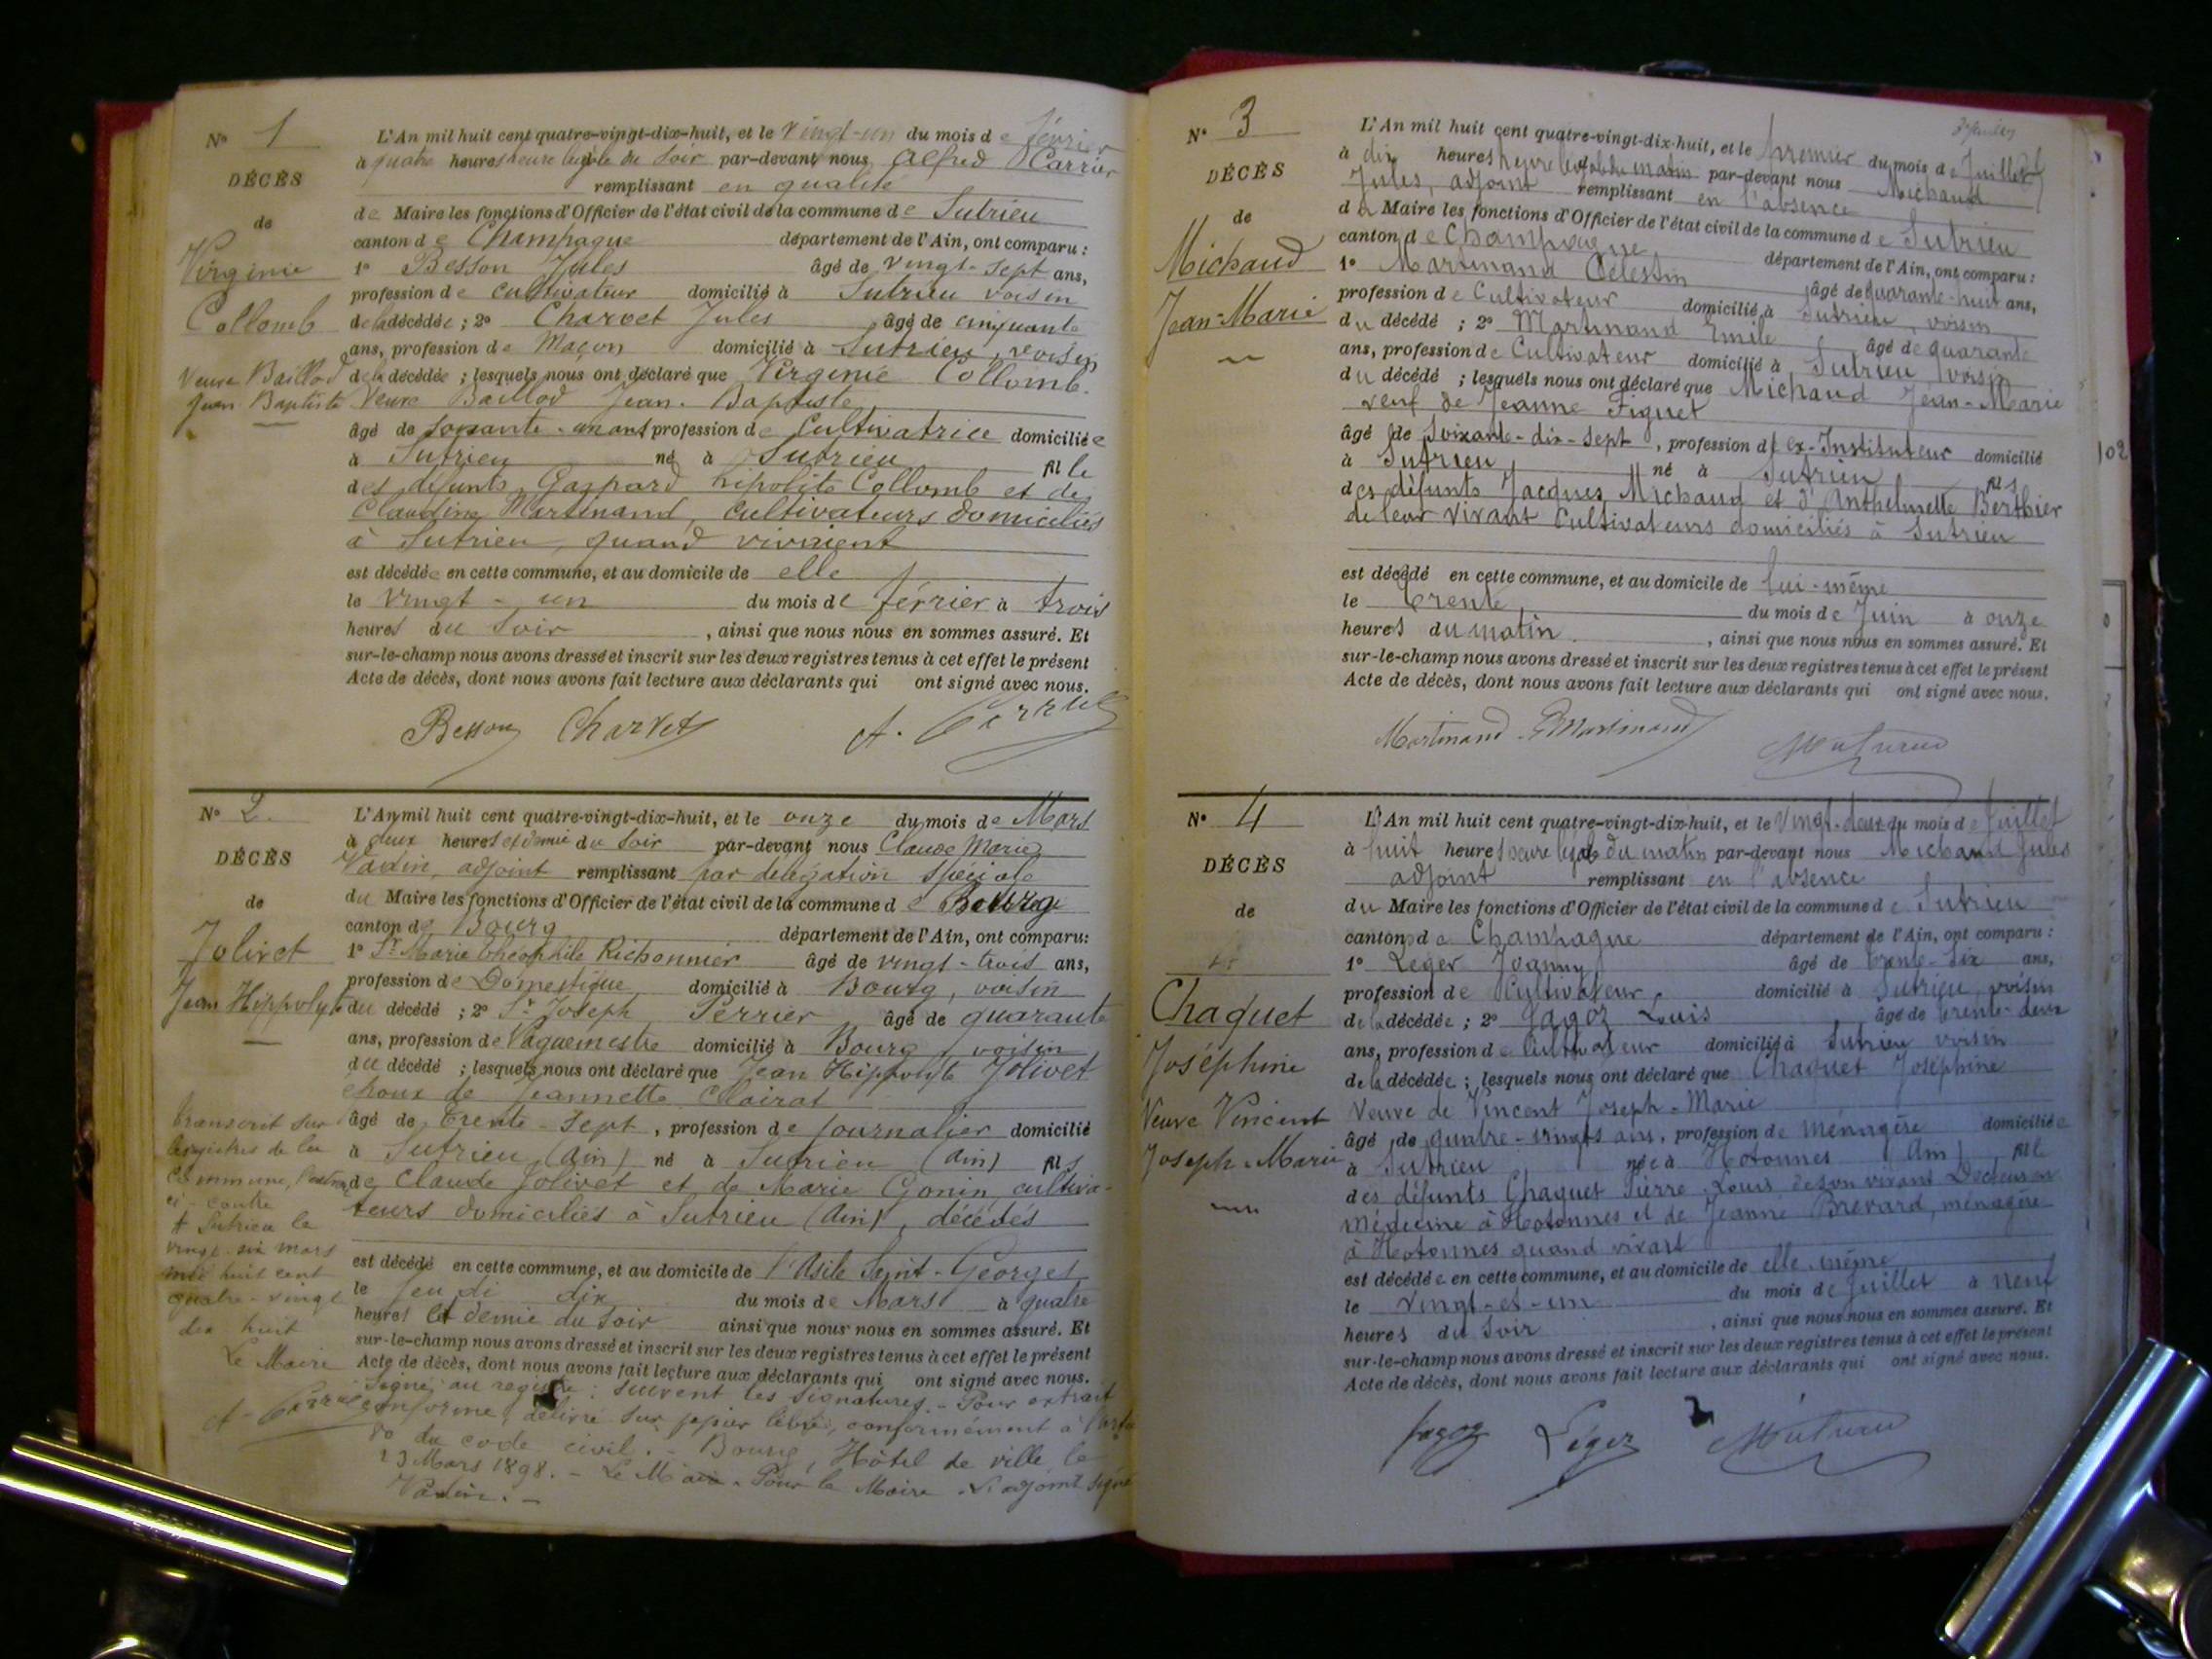 N° 1
DÉCÈS
de
Virginie
Collomb
Veuve Baillod
Jean Baptiste
L'An mil huit cent quatre-vingt-dix-huit, et le vingt-un du mois de février
à quatre heures heure légale du soir par-devant nous Alfred Carrier
remplissant en qualité
de Maire les fonctions d'Officier de l'état civil de la commune de Sutrieu
canton de Champagne département de l'Ain, ont comparu :
1° Besson Jules âgé de vingt-sept ans,
profession de cultivateur domicilié à Sutrieu voisin
de la décédée ; 2° Charvet Jules âgé de cinquante
ans, profession de Maçon domicilié à Sutrieu, voisin
de la décédée ; lesquels nous ont déclaré que Virginie Collomb
Veuve Baillod Jean-Baptiste
âgé de soixante-un ans profession de Cultivatrice domiciliée
à Sutrieu né à Sutrieu fille
des défunts Gaspard hipolite Collomb et de
Claudine Martinand, cultivateurs domiciliés
à Sutrieu, quand vivaient
est décédée en cette commune, et au domicile de elle
le vingt-un du mois de février à trois
heures du soir , ainsi que nous nous en sommes assuré. Et
sur-le-champ nous avons dressé et inscrit sur les deux registres tenus à cet effet le présent
Acte de décès, dont nous avons fait lecture aux déclarants qui ont signé avec nous.
Besson Charvet A. Carrier
N° 2.
DÉCÈS
de
Jolivet
Jean Hippolyte
L'An mil huit cent quatre-vingt-dix-huit, et le onze du mois de Mars
à deux heures et demie du soir par-devant nous Claude Marie
Vadin, adjoint remplissant par délégation spéciale
du Maire les fonctions d'Officier de l'état civil de la commune de Bourg
canton de Bourg département de l'Ain, ont comparu:
1° Sr Marie Théophile Richonnier âgé de vingt-trois ans,
profession de Domestique domicilié à Bourg, voisin
du décédé ; 2° Sr Joseph Perrier âgé de quarante
ans, profession de Vaguemestre domicilié à Bourg, voisin
du décédé ; lesquels nous ont déclaré que Jean Hippolyte Jolivet
époux de Jeannette Clairat
âgé de trente-sept, profession de journalier domicilié
à Sutrieu (Ain) né à Sutrieu (Ain) fils
de Claude Jolivet et de Marie Gonin, cultiva-
teurs domiciliés à Sutrieu (Ain), décédés
est décédé en cette commune, et au domicile de l'Asile Saint-Georges
le jeudi dix du mois de Mars à quatre
heures et demie du soir ainsi que nous nous en sommes assuré. Et
sur-le-champ nous avons dressé et inscrit sur les deux registres tenus à cet effet le présent
Acte de décès, dont nous avons fait lecture aux déclarants qui ont signé avec nous.
Signé au registre : suivent les signatures. - Pour extrait
conforme, délivré sur papier libre, conformément à l'art.
80 du code civil. - Bourg, Hôtel de ville, le
23 Mars 1898. - Le Maire. Pour le Maire. L'adjoint signé
Vadin. -
transcrit sur
les registres de la
Commune, l'extrait
ci-contre
A Sutrieu le
vingt-six mars
mil huit cent
quatre-vingt
dix huit
Le Maire
A. Carrier
N° 3
DÉCÈS
de
Michaud
Jean-Marie
L'An mil huit cent quatre-vingt-dix-huit, et le premier du mois de Juillet
à dix heures heure légale du matin par-devant nous Michaud
Jules, adjoint remplissant en l'absence
du Maire les fonctions d'Officier de l'état civil de la commune de Sutrieu
canton de Champagne département de l'Ain, ont comparu :
1° Martinand Célestin âgé de quarante-huit ans,
profession de Cultivateur domicilié à Sutrieu, voisin
du décédé ; 2° Martinand Emile âgé de quarante
ans, profession de Cultivateur domicilié à Sutrieu voisin
du décédé ; lesquels nous ont déclaré que Michaud Jean-Marie
veuf de Jeanne Figuet
âgé de soixante-dix-sept, profession d'ex-Instituteur domicilié
à Sutrieu né à Sutrieu fils
des défunts Jacques Michaud et d'Anthelmette Berthier
de leur vivant Cultivateurs domiciliés à Sutrieu
est décédé en cette commune, et au domicile de lui-même
le trente du mois de Juin à onze
heures du matin , ainsi que nous nous en sommes assuré. Et
sur-le-champ nous avons dressé et inscrit sur les deux registres tenus à cet effet le présent
Acte de décès, dont nous avons fait lecture aux déclarants qui ont signé avec nous.
Martinand E Martinand
102
N° 4
DÉCÈS
de
Chaquet
Joséphine
Veuve Vincent
Joseph-Marie
L'An mil huit cent quatre-vingt-dix-huit, et le vingt-deux du mois de Juillet
à huit heures heure légale du matin par-devant nous Michaud Jules
adjoint remplissant en l'absence
du Maire les fonctions d'Officier de l'état civil de la commune de Sutrieu
canton de Champagne département de l'Ain, ont comparu :
1° Leger Joanny âgé de trente-six ans,
profession de Cultivateur domicilié à Sutrieu, voisin
de la décédée ; 2° Jagoz Louis âgé de trente-deux
ans, profession de Cultivateur domicilié à Sutrieu voisin
de la décédée ; lesquels nous ont déclaré que Chaquet Joséphine
Veuve de Vincent Joseph-Marie
âgé de quatre-vingts ans, profession de ménagère domiciliée
à Sutrieu née à Hotonnes Ain) fille
des défunts Chaquet Pierre Louis de son vivant Docteur en
Médecine à Hotonnes et de Jeanne Brevard, ménagère
à Hotonnes quand vivait
est décédée en cette commune, et au domicile de elle-même
le vingt-et-un du mois de Juillet à neuf
heures du soir , ainsi que nous nous en sommes assuré. Et
sur-le-champ nous avons dressé et inscrit sur les deux registres tenus à cet effet le présent
Acte de décès, dont nous avons fait lecture aux déclarants qui ont signé avec nous.
Jagoz Léger